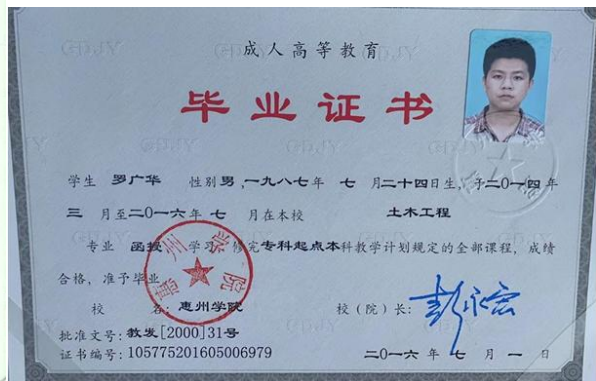 成人高等教育
毕业证书
学生 罗广华 性别男,一九八七年 七 月二十四日生,于二〇一四年
三 月至二〇一六年 七 月在本校 土木工程
专业 函授 学习,修完专科起点本科教学计划规定的全部课程,成绩
合格,准予毕业。
校 名:惠州学院 校(院)长:
批准文号:教发[2000]31号
证书编号:105775201605006979 二〇一六 年 七 月 一 日
惠州学院
GDJY